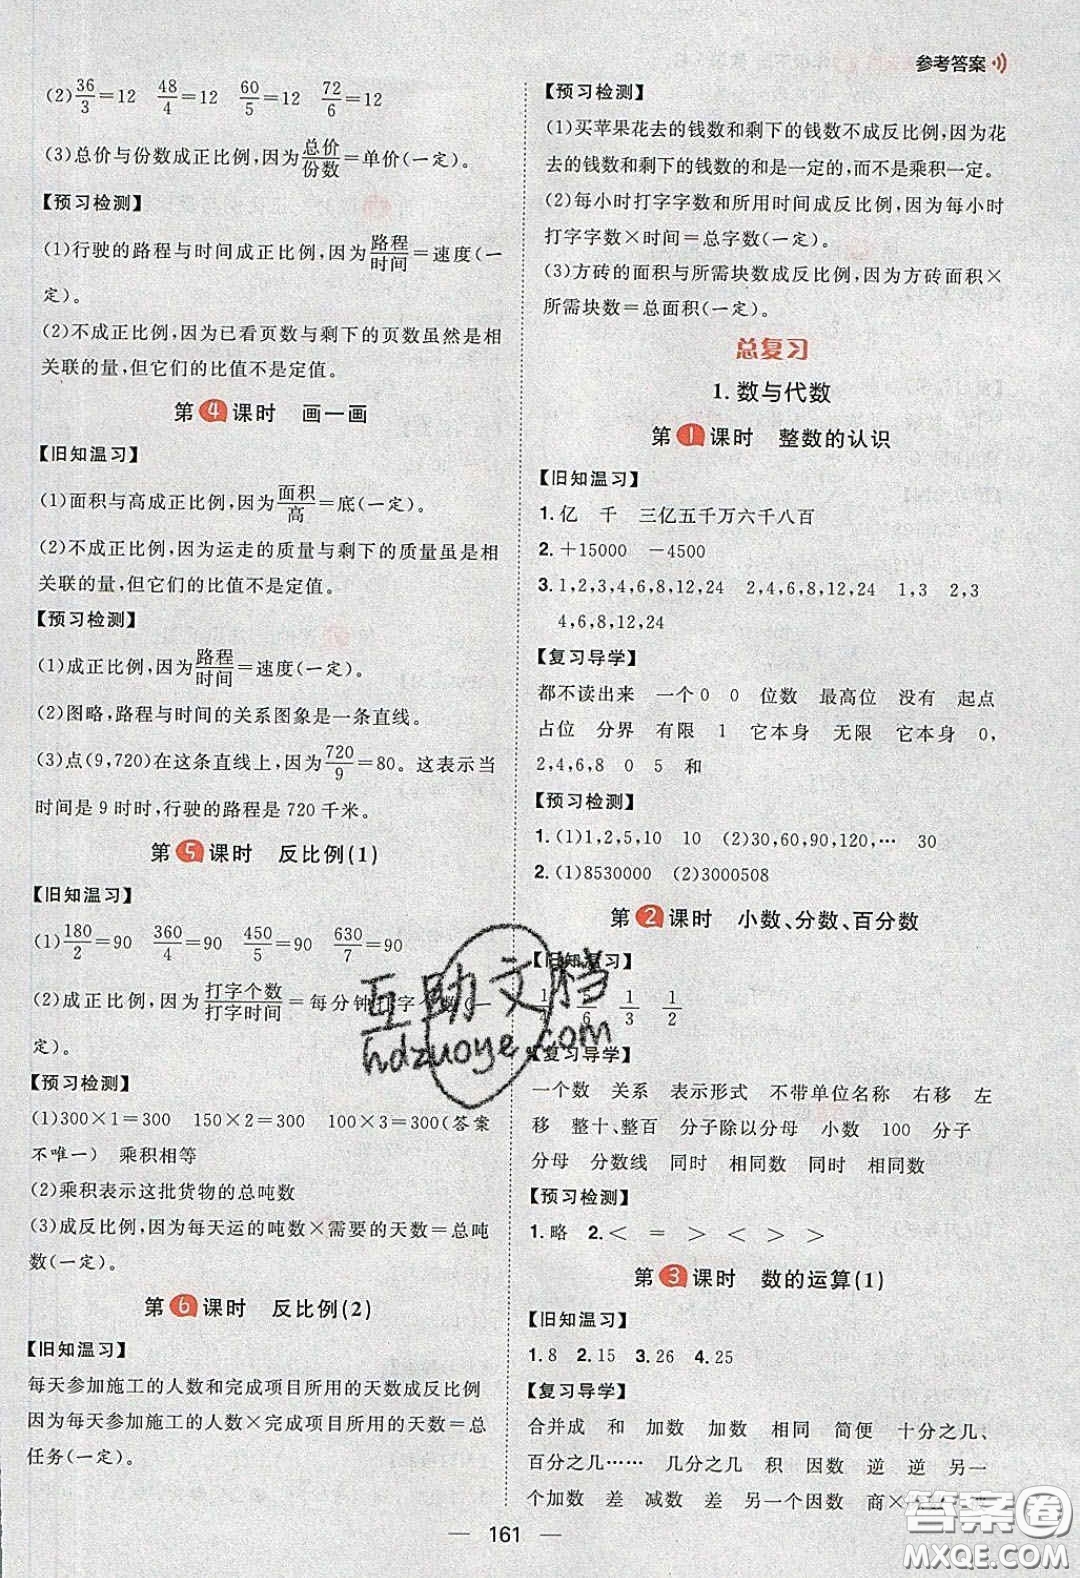 参考答案
(2)36/3=12 48/4=12 60/5=12 72/6=12
(3)总价与份数成正比例,因为总价/份数=单价(一定)。
【预习检测】
(1)行驶的路程与时间成正比例,因为路程/时间=速度(一
定)。
(2)不成正比例,因为已看页数与剩下的页数虽然是相
关联的量,但它们的比值不是定值。
第4课时 画一画
【旧知温习】
(1)面积与高成正比例,因为面积/高=底(一定)。
(2)不成正比例,因为运走的质量与剩下的质量虽然是相
关联的量,但它们的比值不是定值。
【预习检测】
(1)成正比例,因为路程/时间=速度(一定)。
(2)图略,路程与时间的关系图象是一条直线。
(3)点(9,720)在这条直线上,因为720/9=80。这表示当
时间是9时时,行驶的路程是720千米。
第5课时 反比例(1)
【旧知温习】
(1)180/2=90 360/4=90 450/5=90 630/7=90
(2)成正比例,因为打字个数/打字时间=每分钟打字个数(一
定)。
【预习检测】
(1)300×1=300 150×2=300 100×3=300(答案
不唯一) 乘积相等
(2)乘积表示这批货物的总吨数
(3)成反比例,因为每天运的吨数×需要的天数=总吨
数(一定)。
第6课时 反比例(2)
【旧知温习】
每天参加施工的人数和完成项目所用的天数成反比例
因为每天参加施工的人数×完成项目所用的天数=总
任务(一定)。
【预习检测】
(1)买苹果花去的钱数和剩下的钱数不成反比例,因为花
去的钱数和剩下的钱数的和是一定的,而不是乘积一定。
(2)每小时打字字数和所用时间成反比例,因为每小时
打字字数×时间=总字数(一定)。
(3)方砖的面积与所需块数成反比例,因为方砖面积×
所需块数=总面积(一定)。
总复习
1.数与代数
第1课时 整数的认识
【旧知温习】
1.亿 千 三亿五千万六千八百
2.+15000 -4500
3.1,2,3,4,6,8,12,24 2,4,6,8,12,24 1,3 2,3
4,6,8,12,24
【复习导学】
都不读出来 一个0 0 位数 最高位 没有 起点
占位 分界 有限 1 它本身 无限 它本身 0,
2,4,6,8 0 5 和
【预习检测】
1.(1)1,2,5,10 10 (2)30,60,90,120,… 30
2.(1)8530000 (2)3000508
第2课时 小数、分数、百分数
【旧知温习】
1/6 1/3 1/2
【复习导学】
一个数 关系 表示形式 不带单位名称 右移 左
移 整十、整百 分子除以分母 小数 100 分子
分母 分数线 同时 相同数 同时 相同数
【预习检测】
1.略 2.< = > < > >
第3课时 数的运算(1)
【旧知温习】
1.8 2.15 3.26 4.25
【复习导学】
合并成 和 加数 加数 相同 简便 十分之几、
百分之几…… 几分之几 积 因数 逆 逆 另一
个加数 差 减数 差 另一个因数 商×
161
互助文档
hdzuoye.com
答案圈
MXQE.COM